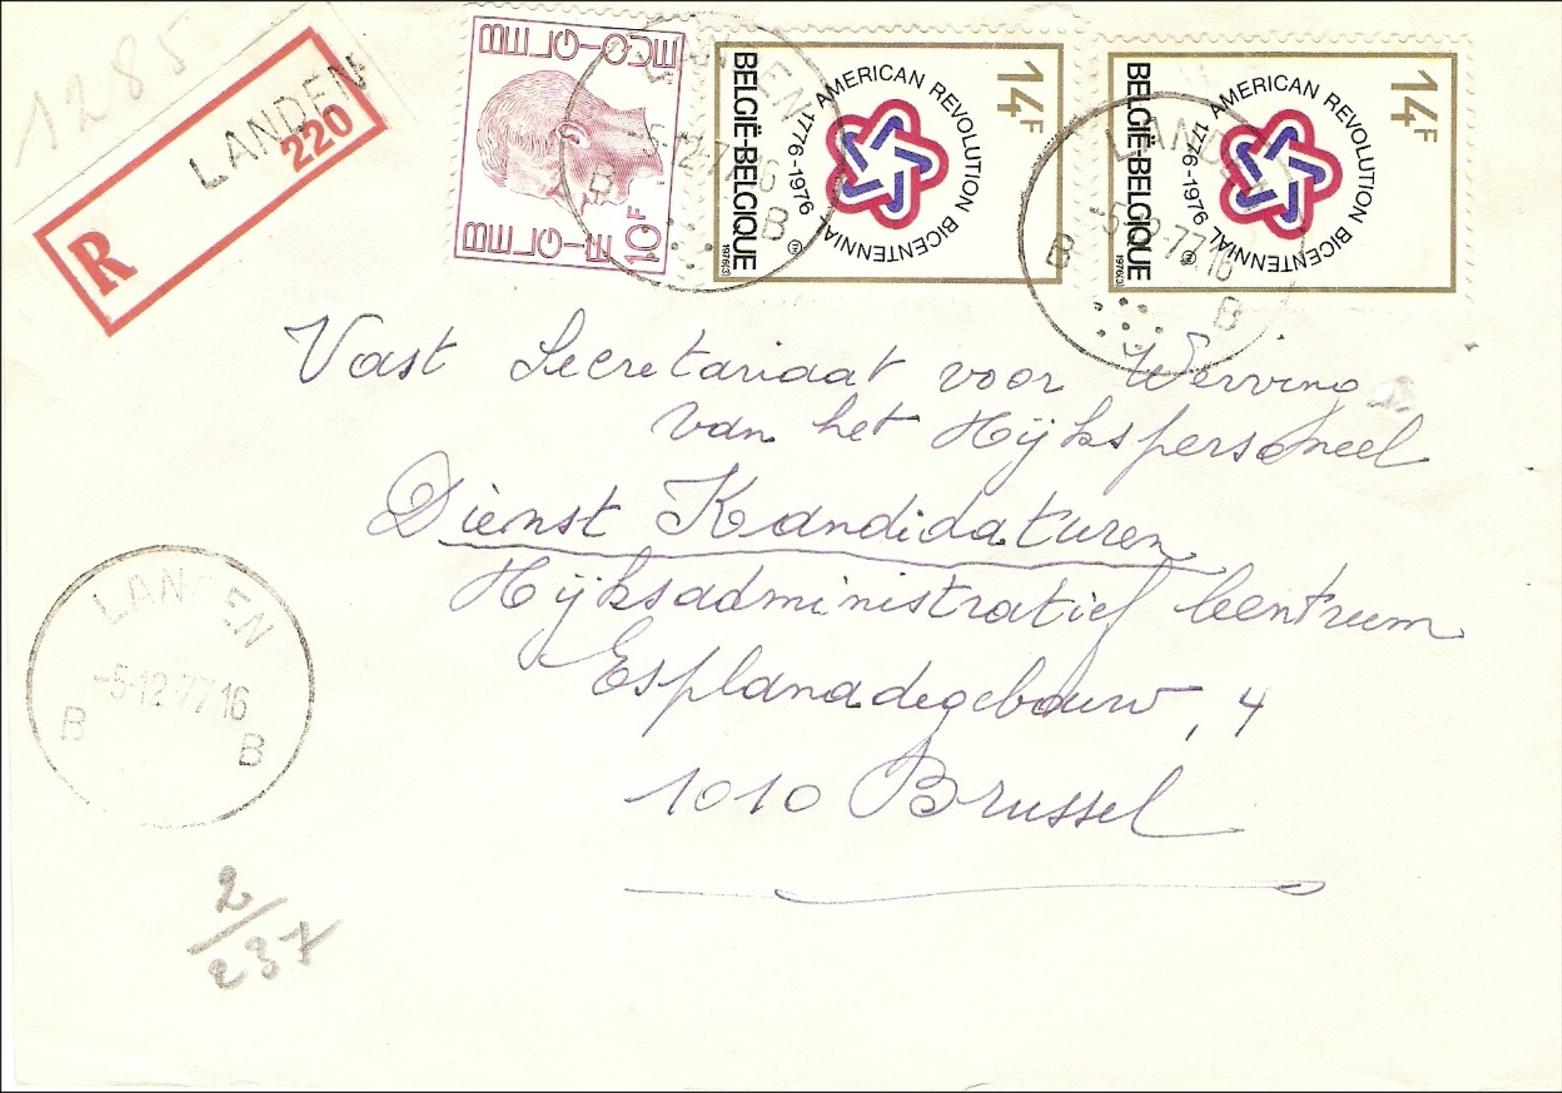 1285
LANDEN
220
R
BELGIQUE
BELGIE
10F
BELGIË-BELGIQUE
AMERICAN REVOLUTION BICENTENNIAL
1776-1976
14F
1976(3)
BELGIË-BELGIQUE
AMERICAN REVOLUTION BICENTENNIAL
1776-1976
14F
1976(3)
LANDEN
-5-12-77 16
B B
Vast Secretariaat voor Werving
van het Rijkspersoneel
Dienst Kandidaturen
Rijksadministratief Centrum
Esplanadegebouw, 4
1010 Brussel
LANDEN
-5-12-77 16
B B
2/237